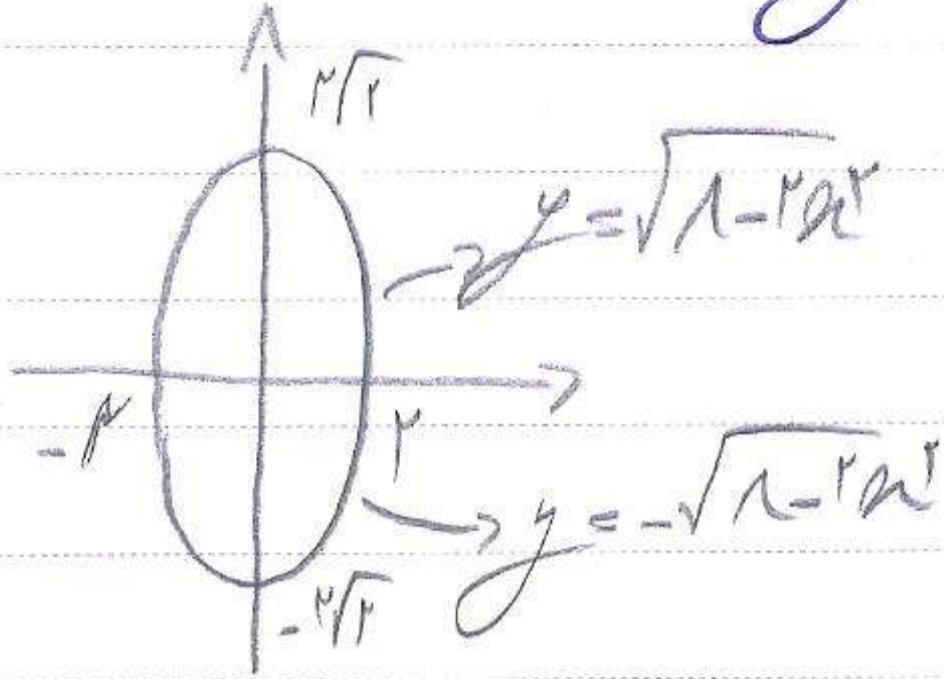 ۲√۲
y = √(۸-۲x^۲)
-۲
۲
y = -√(۸-۲x^۲)
-۲√۲